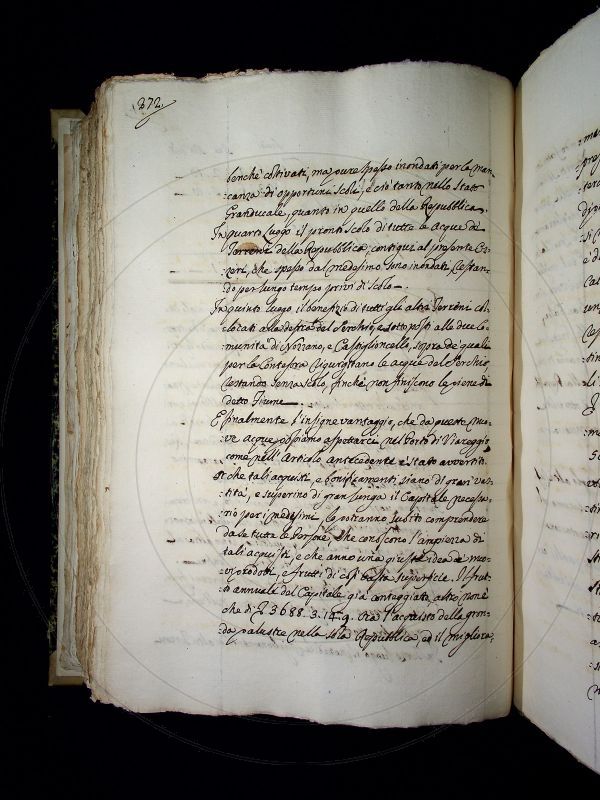 372.
benchè coltivati, ma pure spesso inondati per la man-
canza di opportuni scoli, e ciò tanto nello Stato
Granducale, quanto in quello della Repubblica.
In quarto luogo il pronti scolo di tutte le Acque di
Terreni della Repubblica, contigui al presente
che spesso dal medesimo sono inondati restan-
do per lungo tempo privi di scolo.
In quinto luogo il benefizio di tutti gli altri Terreni col-
locati alla destra del Serchio, e sottoposti alle due Co-
munità di Nozzano, e Castiglioncello, sopra de quali
per la rigurgitano le acque del Serchio
restando senza scolo, finchè non finiscono le piene di
detto Fiume.
E finalmente l'insigne vantaggio, che da queste nuo-
ve acque possiamo aspettarci nel Porto di Viareggio
come nell'Articolo antecedente è stato avvertito.
che tali acquisti, e bonificamenti siano di gran van-
tità, e superino di gran lunga il Capitale necessa-
rio per i medesimi, lo potranno subito comprendere
da se tutte le Persone, che conoscono l'ampiezza di
tali acquisti, e che anno una giusta idea de nuo-
vi prodotti, e frutti di così vasta superficie. Il frut-
to annuale del Capitale già conteggiato altro non è
che di 3688.3.14.9. ora l'acquisto della gron-
da palustre nella sola Repubblica, ed il migliora-